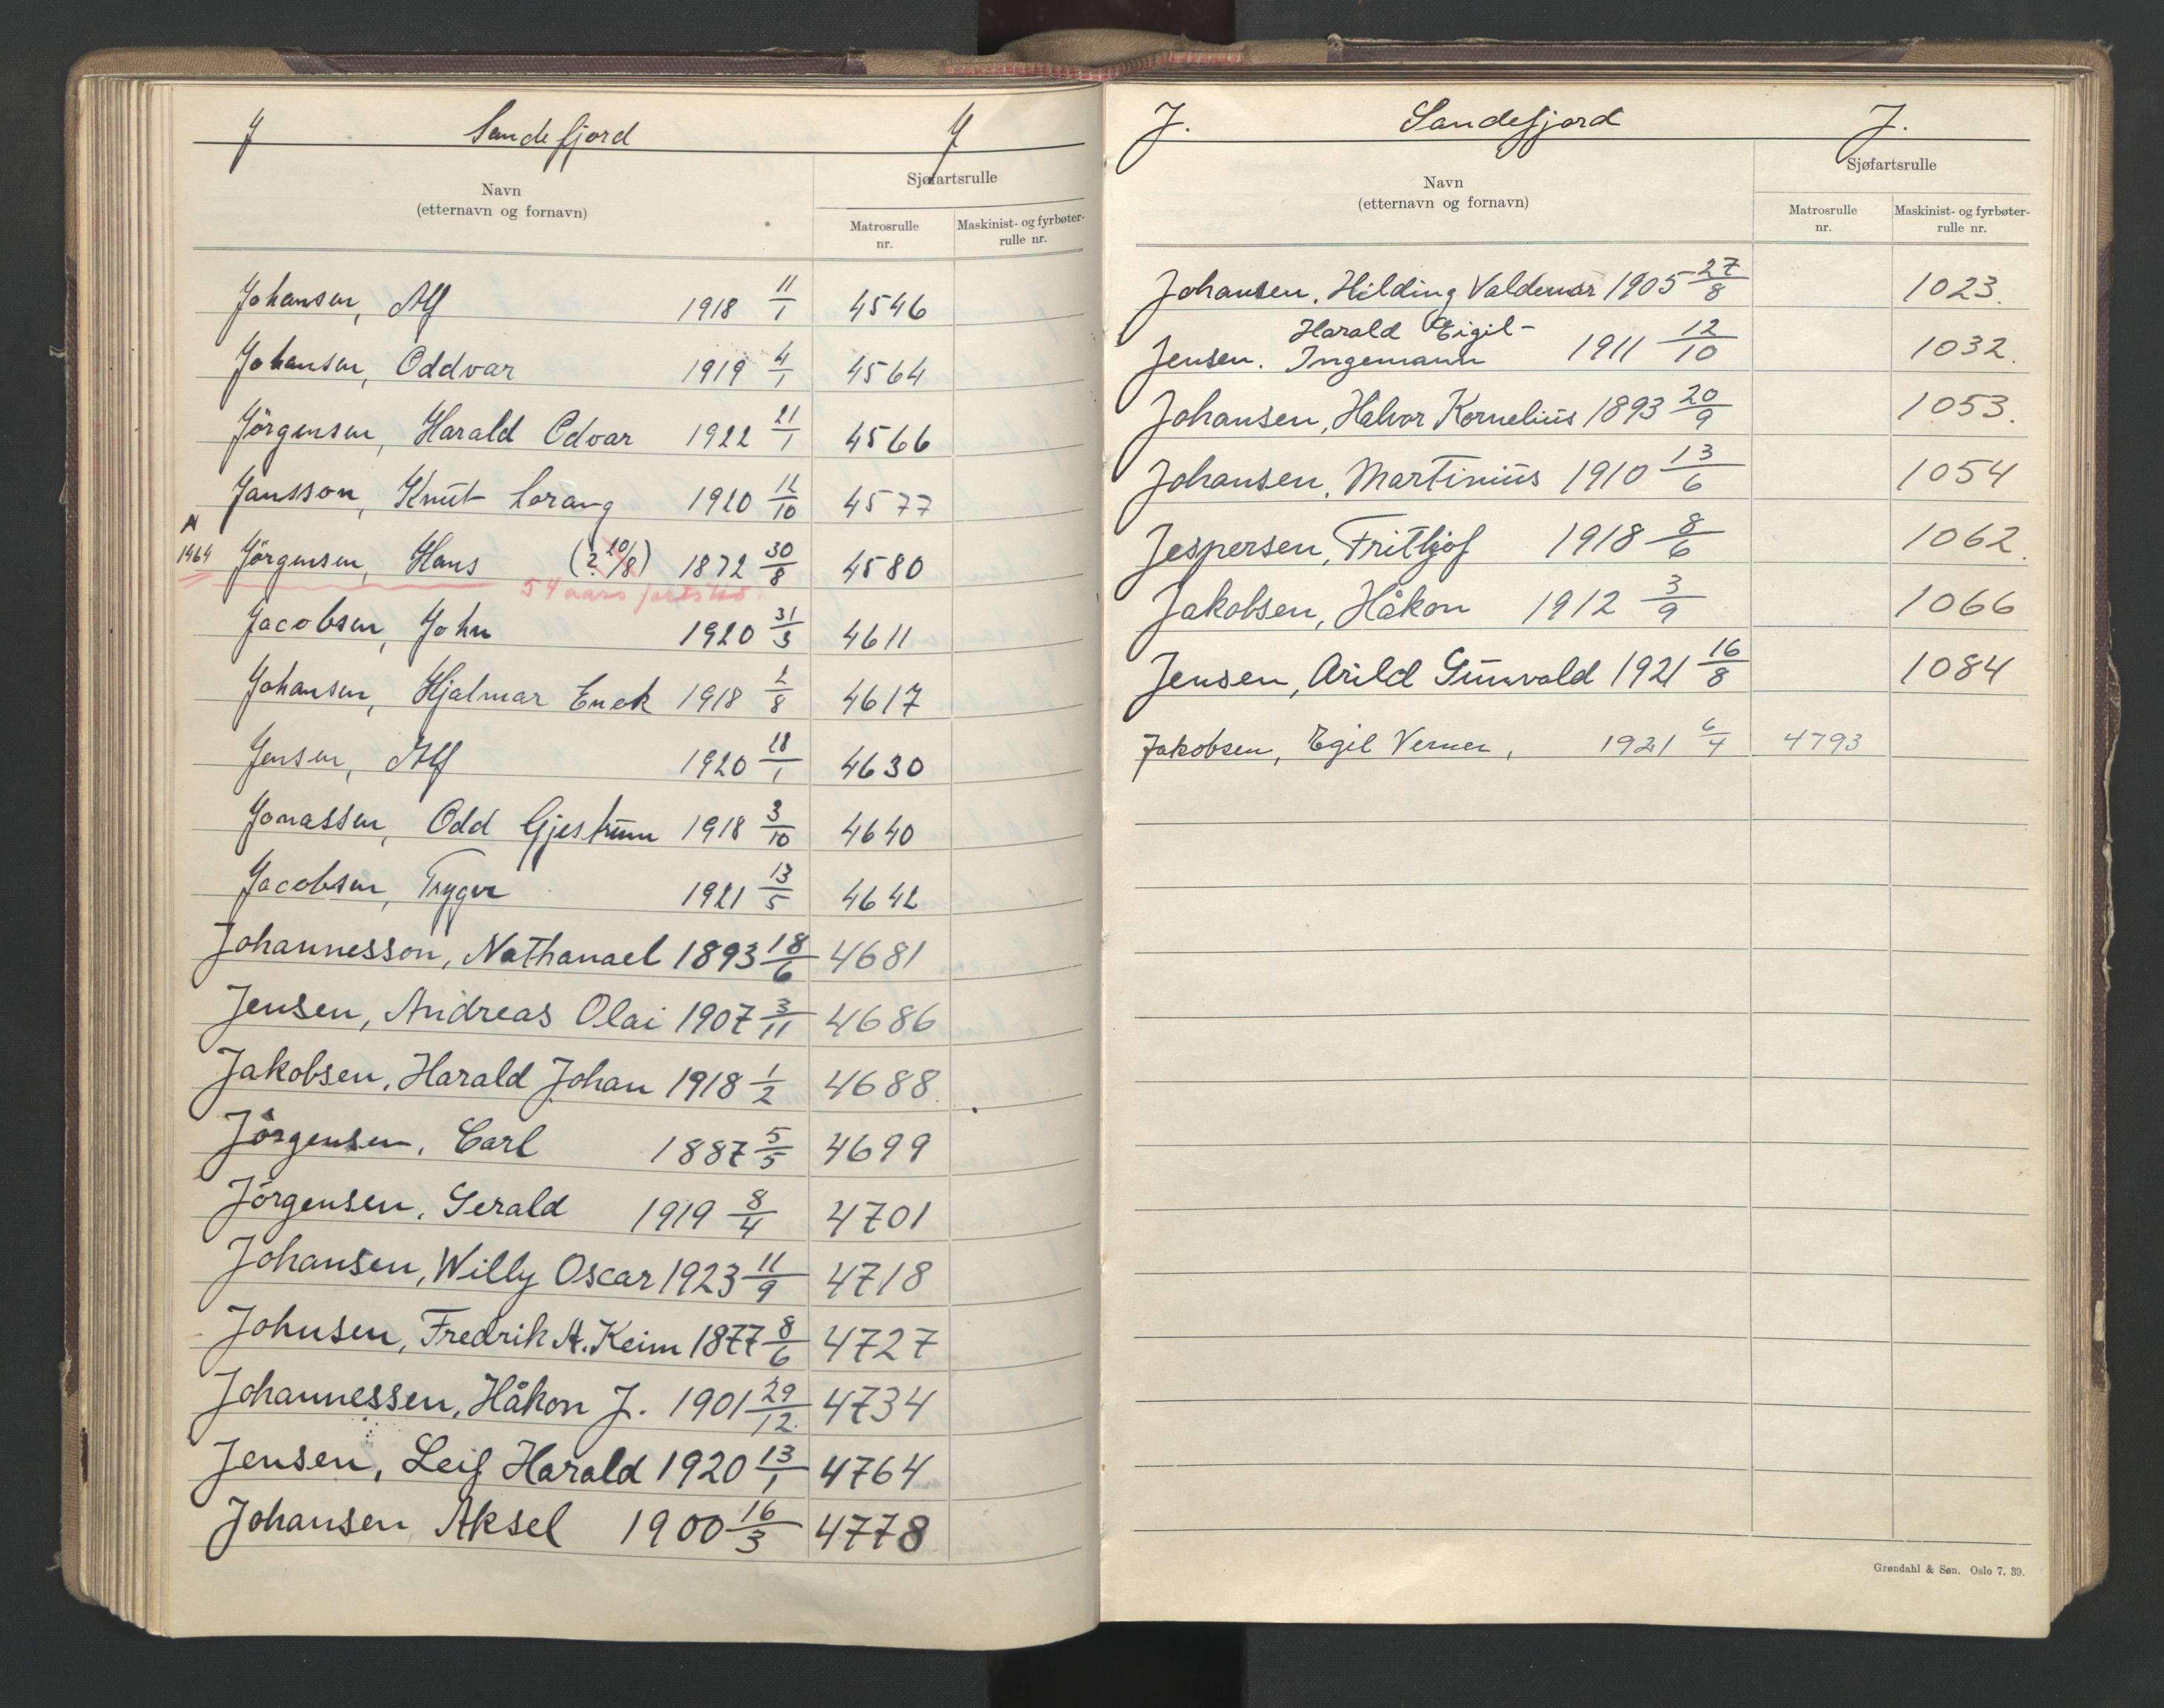 J Sandefjord J
Sjøfartsrulle
Navn
(etternavn og fornavn)
Matrosrulle nr.
Maskinist- og fyrbøter-rulle nr.
Johansen, Alf 1918 11/1 4546
Johansen, Oddvar 1919 4/1 4564
Jörgensen, Harald Odvar 1922 21/1 4566
Jansson, Knut Lorang 1920 12/10 4577
N 1464 Jörgensen, Hans (? 20/8) 1872 30/8 4580
54 aars
Jacobsen, John 1920 31/3 4611
Johansen, Hjalmar Enok 1918 2/8 4617
Jensen, Alf 1920 28/1 4630
Jonassen, Odd Gjestrum 1918 3/10 4640
Jacobsen, Trygve 1921 13/5 4642
Johannesson, Nathanael 1893 18/6 4681
Jensen, Andreas Olai 1907 3/11 4686
Jakobsen, Harald Johan 1918 1/2 4688
Jörgensen, Carl 1887 5/5 4699
Jörgensen, Gerald 1919 8/4 4701
Johansen, Willy Oscar 1923 11/9 4718
Johnsen, Fredrik A. Keim 1877 8/6 4727
Johannessen, Håkon J. 1901 29/12 4734
Jensen, Leif Harald 1920 13/1 4764
Johansen, Aksel 1900 16/3 4778
J. Sandefjord J.
Sjøfartsrulle
Navn
(etternavn og fornavn)
Matrosrulle nr.
Maskinist- og fyrbøter-rulle nr.
Johansen, Hilding Valdemar 1905 27/8 1023.
Harald Eigil-
Jensen. Ingemann 1911 12/10 1032.
Johansen, Halvor Kornelius 1893 20/9 1053.
Johansen, Martinius 1910 13/6 1054
Jespersen, Frithjof 1918 8/6 1062.
Jakobsen, Håkon 1912 3/9 1066
Jensen, Arild Gunvald 1921 16/8 1084
Jakobsen, Egil Verner, 1921 6/4 4793
Grøndahl & Søn. Oslo 7. 39.